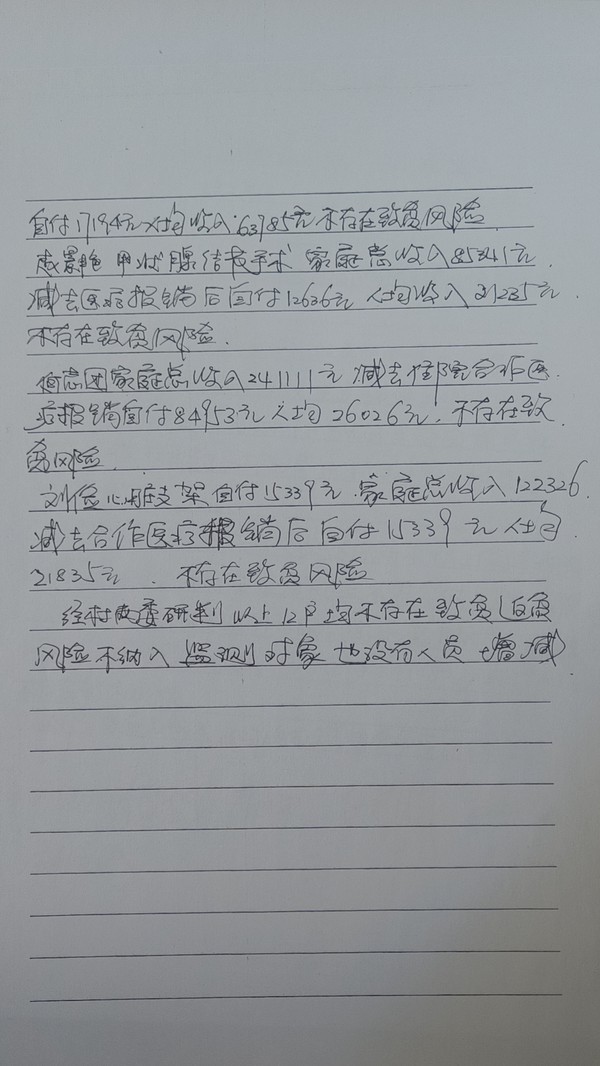 自付17194元人均收入63785元不存在致贫风险
甲状腺结核手术 家庭总收入85341元
减去医疗报销后自付12636元 人均收入21235元
不存在致贫风险.
家庭总收入241111元 减去住院合作医
疗报销自付84953元人均26026元.不存在致
贫风险
刘 心脏支架自付15339元.家庭总收入122326
减去合作医疗报销后自付15339元人均
21835元.不存在致贫风险
经村两委研判 以上12户均不存在致贫返贫
风险不纳入监测对象也没有人员增减